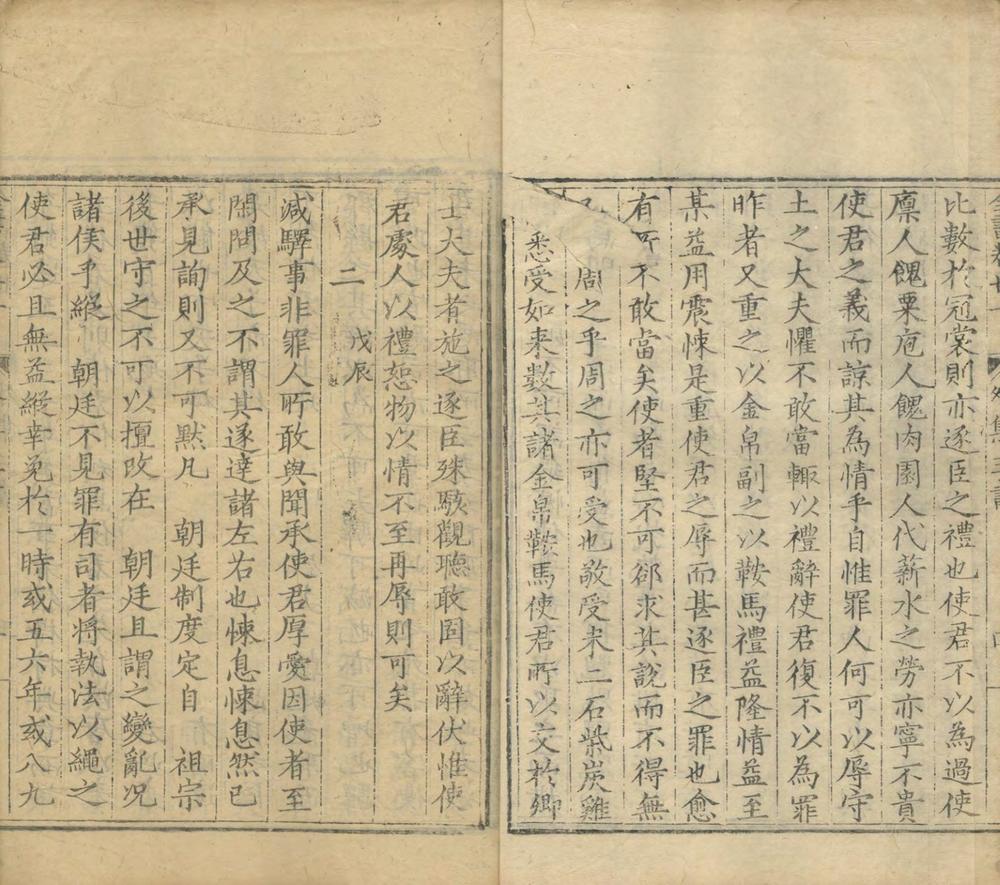 比數於冠裳則亦逐臣之禮也使君不以為過使
廩人餽粟庖人餽肉園人代薪水之勞亦寧不貴
使君之義而諒其為情乎自惟罪人何可以辱守
土之大夫懼不敢當輒以禮辭使君復不以為罪
昨者又重之以金帛副之以鞍馬禮益隆情益至
某益用震悚是重使君之辱而甚逐臣之罪也愈
有不敢當矣使者堅不可郤求其說而不得無
周之乎周之亦可受也敬受米二石柴炭雞
悉受如来數其諸金帛鞍馬使君所以交於卿
士大夫者施之逐臣殊駭觀聽敢固以辭伏惟使
君處人以禮恕物以情不至再辱則可矣
二 戊辰
減驛事非罪人所敢與聞承使君厚愛因使者至
閒問及之不謂其遂達諸左右也悚息悚息然已
承見詢則又不可默凡 朝廷制度定自 祖宗
後世守之不可以擅改在 朝廷且謂之變亂况
諸侯乎縱 朝廷不見罪有司者將執法以繩之
使君必且無益縱幸免於一時或五六年或八九